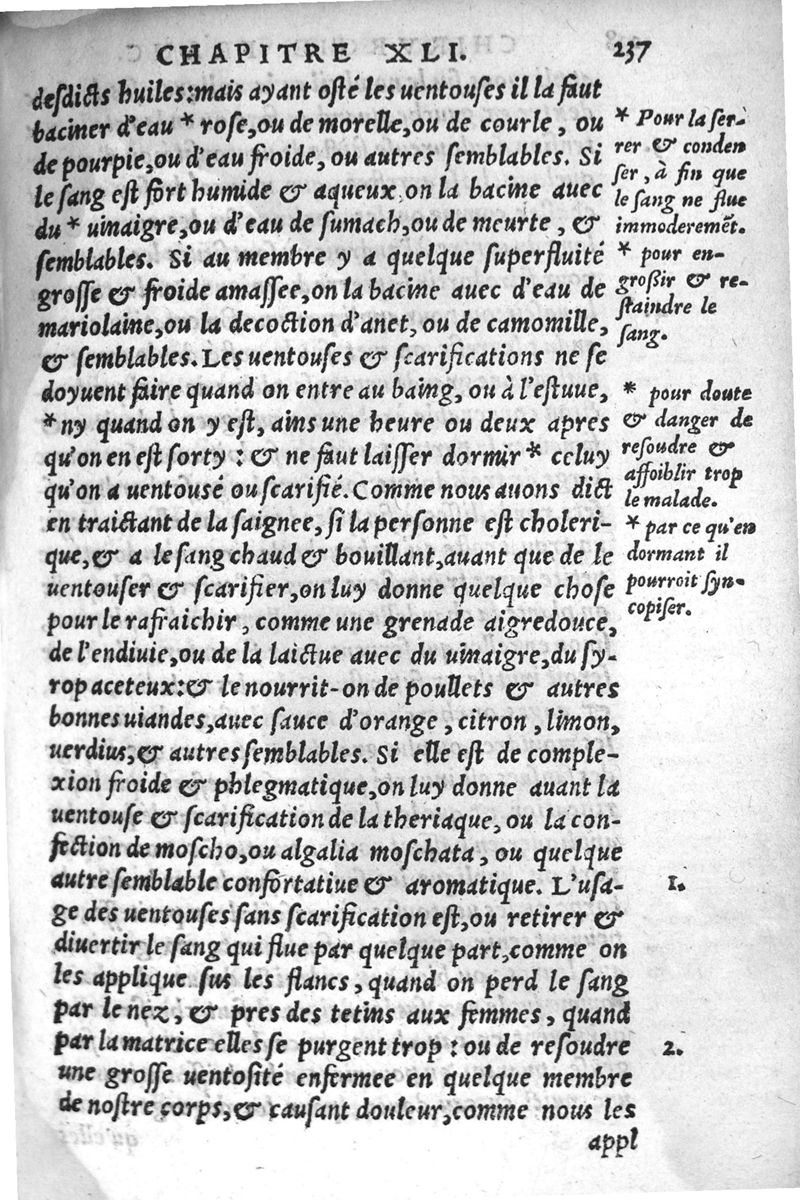 CHAPITRE XLI. 237
desdicts huiles:mais ayant osté les uentouses il la faut
baciner d'eau * rose,ou de morelle,ou de courle, ou
de pourpie,ou d'eau froide, ou autres semblables. Si
le sang est fort humide & aqueux,on la bacine auec
du * uinaigre,ou d'eau de sumach,ou de meurte, &
semblables. Si au membre y a quelque superfluité
grosse & froide amassee,on la bacine auec d'eau de
mariolaine,ou la decoction d'anet, ou de camomille,
& semblables. Les uentouses & scarifications ne se
doyuent faire quand on entre au baing, ou à l'estuue,
*ny quand on y est, ains une heure ou deux apres
qu'on en est sorty : & ne faut laisser dormir * celuy
qu'on a uentousé ou scarifié. Comme nous auons dict
en traictant de la saignee, si la personne est choleri-
que,& a le sang chaud & bouillant,auant que de le
uentouser & scarifier,on luy donne quelque chose
pour le rafraichir, comme une grenade aigredouce,
de l'endiuie,ou de la laictue auec du uinaigre,du sy-
rop aceteux:& le nourrit-on de poullets & autres
bonnes uiandes,auec sauce d'orange, citron, limon,
uerdius,& autres semblables. Si elle est de comple-
xion froide & phlegmatique,on luy donne auant la
uentouse & scarification de la theriaque, ou la con-
fection de moscho,ou algalia moschata, ou quelque
autre semblable confortatiue & aromatique. L'usa-
ge des uentouses sans scarification est,ou retirer &
diuertir le sang qui flue par quelque part,comme on
les applique sus les flancs, quand on perd le sang
par le nez, & pres des tetins aux femmes, quand
par la matrice elles se purgent trop : ou de resoudre
une grosse uentosité enfermee en quelque membre
de nostre corps,& causant douleur,comme nous les
appl
* Pour la ser-
rer & conden
ser, à fin que
le sang ne flue
immoderemēt.
* pour en-
grossir & re-
staindre le
sang.
* pour doute
& danger de
resoudre &
affoiblir trop
le malade.
* par ce qu'en
dormant il
pourroit syn-
copiser.
1.
2.